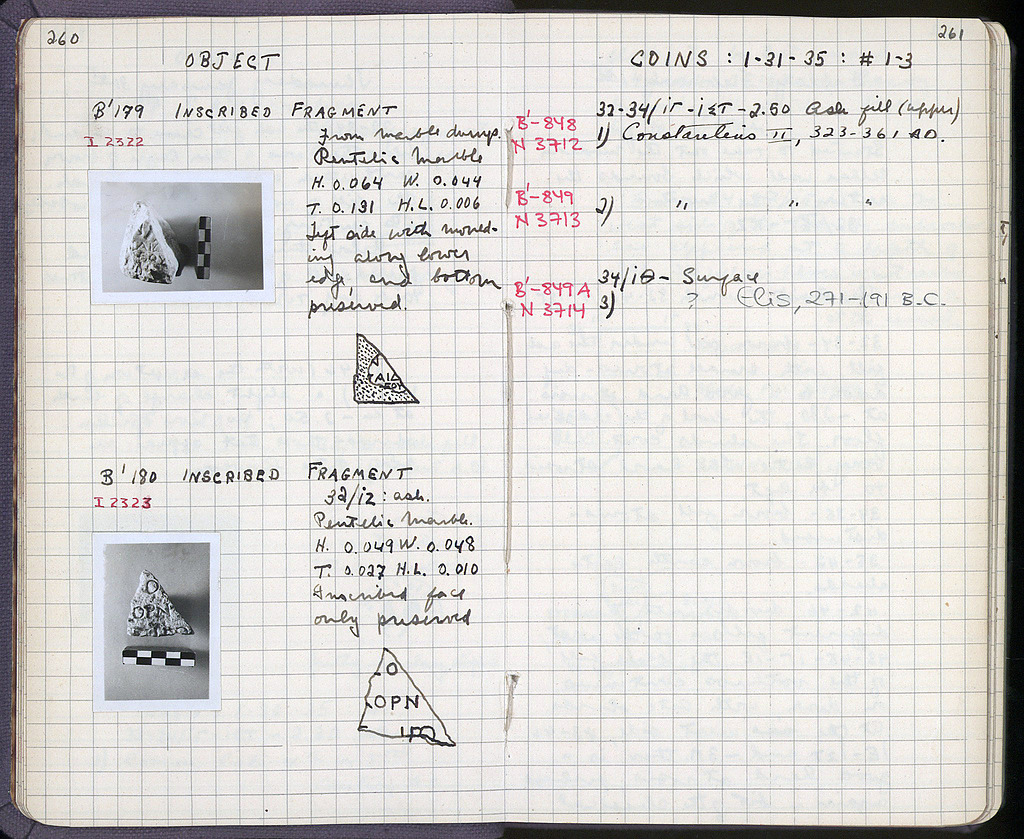 260
OBJECT
B'179 INSCRIBED FRAGMENT
I 2322
From marble dump.
Pentelic Marble
H. 0.064 W. 0.044
T. 0.131 H.L. 0.006
Left side with mould-
ing along lower
edge, and bottom
preserved.
B'180 INSCRIBED FRAGMENT
I 2323
32/ΙΖ: ash.
Pentelic Marble.
H. 0.049 W. 0.048
T. 0.027 H.L. 0.010
Inscribed face
only preserved
O
OPN
261
COINS : 1-31-35 : # 1-3
32-34/ΙΓ-ΙΣΤ-2.50 Ash fill (upper)
B'-848
N 3712
1) Constantius II, 323-361 A.D.
B'-849
N 3713
2) " " "
34/ΙΘ - Surface
B'-849 A
N 3714
3) ? Elis, 271-191 B.C.